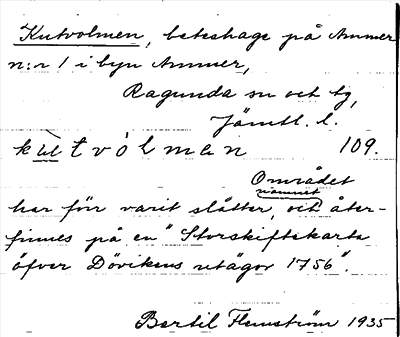 Kutvolmen, beteshage på Ammer
n:r 1 i byn Ammer,
Ragunda sn och tg,
Jämtl. l.
kutvòlmen 109.
Området
namnet
har förr varit slåtter, och åter-
finnes på en "Storskiftskarta
öfver Dövikens utägor 1756".
Bertil Flemström 1935